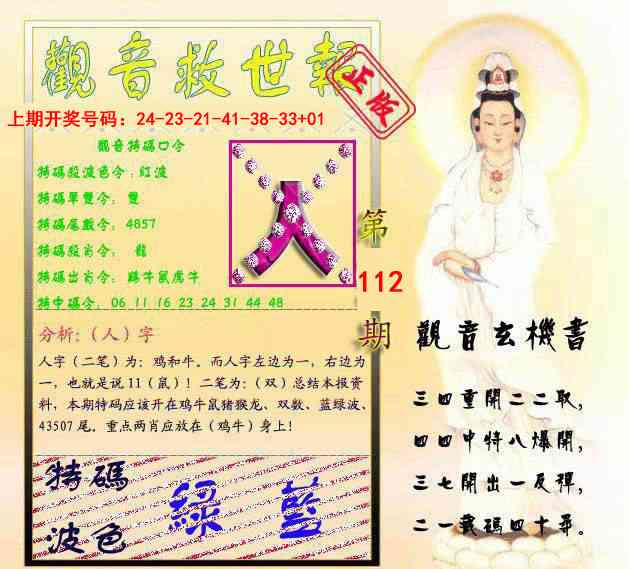 觀音救世報
正版
上期开奖号码：24-23-21-41-38-33+01
觀音特碼口令
特碼殺波色令：紅波
特碼單雙令： 雙
特碼尾數令： 4857
特碼殺肖令： 龍
特碼出肖令： 豬牛鼠虎牛
特中碼令： 06 11 16 23 24 31 44 48
人
第
112
期
分析:（人）字
人字（二笔）为：鸡和牛。而人字左边为一，右边为
一，也就是说 11（鼠）！二笔为:（双）总结本报资
料，本期特码应该开在鸡牛鼠猪猴龙、双数、蓝绿波、
43507 尾。重点两肖应放在（鸡牛）身上！
特碼
波色
綠 藍
觀音玄機書
三四重開二二取，
四四中特八爆開，
三七開出一反彈，
二一載碼四十尋。